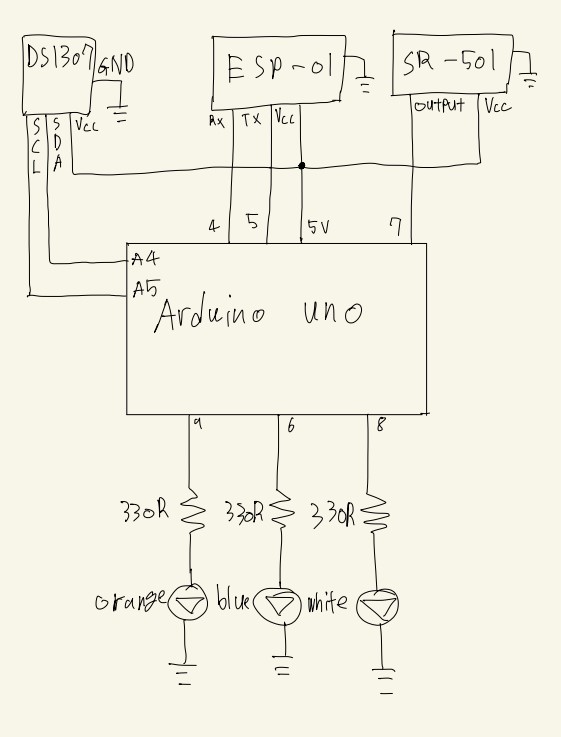 DS1307
GND
SCL
SDA
Vcc
ESP-01
Rx
TX
Vcc
SR-501
output
Vcc
4
5
5V
7
A4
A5
Arduino uno
9
6
8
330R
330R
330R
orange
blue
white